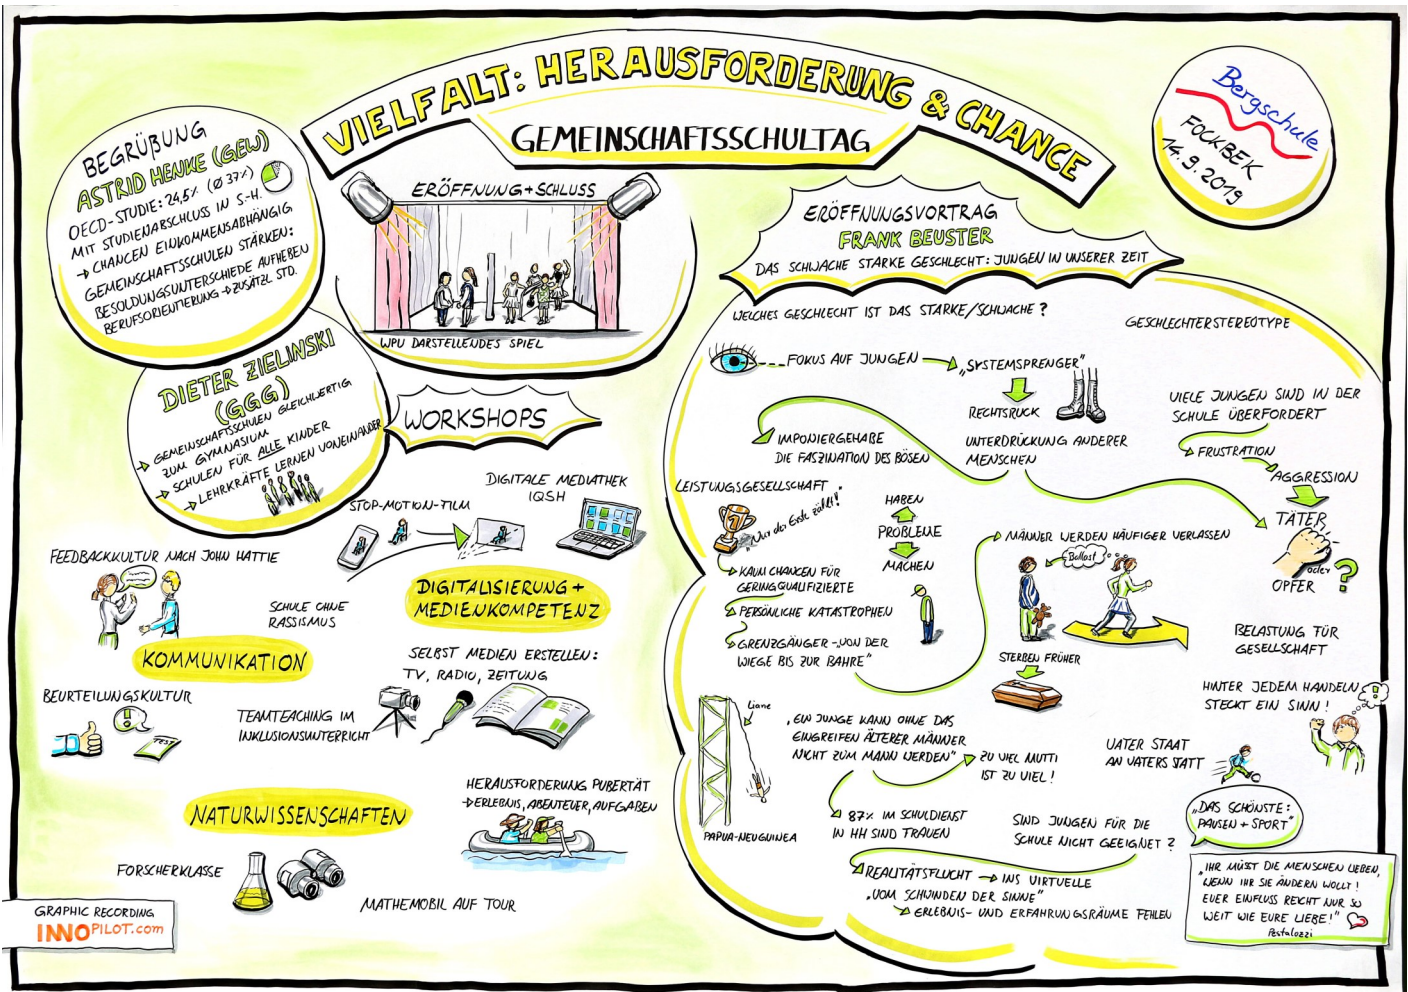 VIELFALT: HERAUSFORDERUNG & CHANCE
GEMEINSCHAFTSSCHULTAG
Bergschule
FOCKBEK
14.9.2019
BEGRÜßUNG
ASTRID HENKE (GEW)
OECD-STUDIE: 24,5% (Ø 37%)
MIT STUDIENABSCHLUSS IN S.-H.
→ CHANCEN EINKOMMENSABHÄNGIG
GEMEINSCHAFTSSCHULEN STÄRKEN:
BESOLDUNGSUNTERSCHIEDE AUFHEBEN
BERUFSORIENTIERUNG → ZUSÄTZL. STD.
DIETER ZIELINSKI
(GGG)
GEMEINSCHAFTSSCHULEN GLEICHWERTIG
ZUM GYMNASIUM
SCHULEN FÜR ALLE KINDER
LEHRKRÄFTE LERNEN VONEINANDER
ERÖFFNUNG + SCHLUSS
WPU DARSTELLENDES SPIEL
WORKSHOPS
STOP-MOTION-FILM
DIGITALE MEDIATHEK
IQSH
DIGITALISIERUNG +
MEDIENKOMPETENZ
SELBST MEDIEN ERSTELLEN:
TV, RADIO, ZEITUNG
FEEDBACKKULTUR NACH JOHN HATTIE
SCHULE OHNE
RASSISMUS
KOMMUNIKATION
BEURTEILUNGSKULTUR
TEST
TEAMTEACHING IM
INKLUSIONSUNTERRICHT
HERAUSFORDERUNG PUBERTÄT
→ ERLEBNIS, ABENTEUER, AUFGABEN
NATURWISSENSCHAFTEN
FORSCHERKLASSE
MATHEMOBIL AUF TOUR
GRAPHIC RECORDING
INNOPILOT.com
ERÖFFNUNGSVORTRAG
FRANK BEUSTER
DAS SCHWACHE STARKE GESCHLECHT: JUNGEN IN UNSERER ZEIT
WELCHES GESCHLECHT IST DAS STARKE/SCHWACHE?
GESCHLECHTERSTEREOTYPE
FOKUS AUF JUNGEN → „SYSTEMSPRENGER"
RECHTSRUCK
UNTERDRÜCKUNG ANDERER
MENSCHEN
IMPONIERGEHABE
DIE FASZINATION DES BÖSEN
VIELE JUNGEN SIND IN DER
SCHULE ÜBERFORDERT
FRUSTRATION
AGGRESSION
TÄTER
oder
OPFER ?
LEISTUNGSGESELLSCHAFT
1
„Nur der Erste zählt!"
KAUM CHANCEN FÜR
GERINGQUALIFIZIERTE
PERSÖNLICHE KATASTROPHEN
GRENZGÄNGER „VON DER
WIEGE BIS ZUR BAHRE"
HABEN
PROBLEME
MACHEN
MÄNNER WERDEN HÄUFIGER VERLASSEN
Ballast
STERBEN FRÜHER
BELASTUNG FÜR
GESELLSCHAFT
HINTER JEDEM HANDELN
STECKT EIN SINN!
Liane
PAPUA-NEUGUINEA
„EIN JUNGE KANN OHNE DAS
EINGREIFEN ÄLTERER MÄNNER
NICHT ZUM MANN WERDEN"
ZU VIEL MUTTI
IST ZU VIEL!
87% IM SCHULDIENST
IN HH SIND FRAUEN
VATER STAAT
AN VATERS STATT
„DAS SCHÖNSTE:
PAUSEN + SPORT"
SIND JUNGEN FÜR DIE
SCHULE NICHT GEEIGNET?
REALITÄTSFLUCHT → INS VIRTUELLE
„VOM SCHWINDEN DER SINNE"
ERLEBNIS- UND ERFAHRUNGSRÄUME FEHLEN
„IHR MÜSST DIE MENSCHEN LIEBEN,
WENN IHR SIE ÄNDERN WOLLT!
EUER EINFLUSS REICHT NUR SO
WEIT WIE EURE LIEBE!"
Pestalozzi